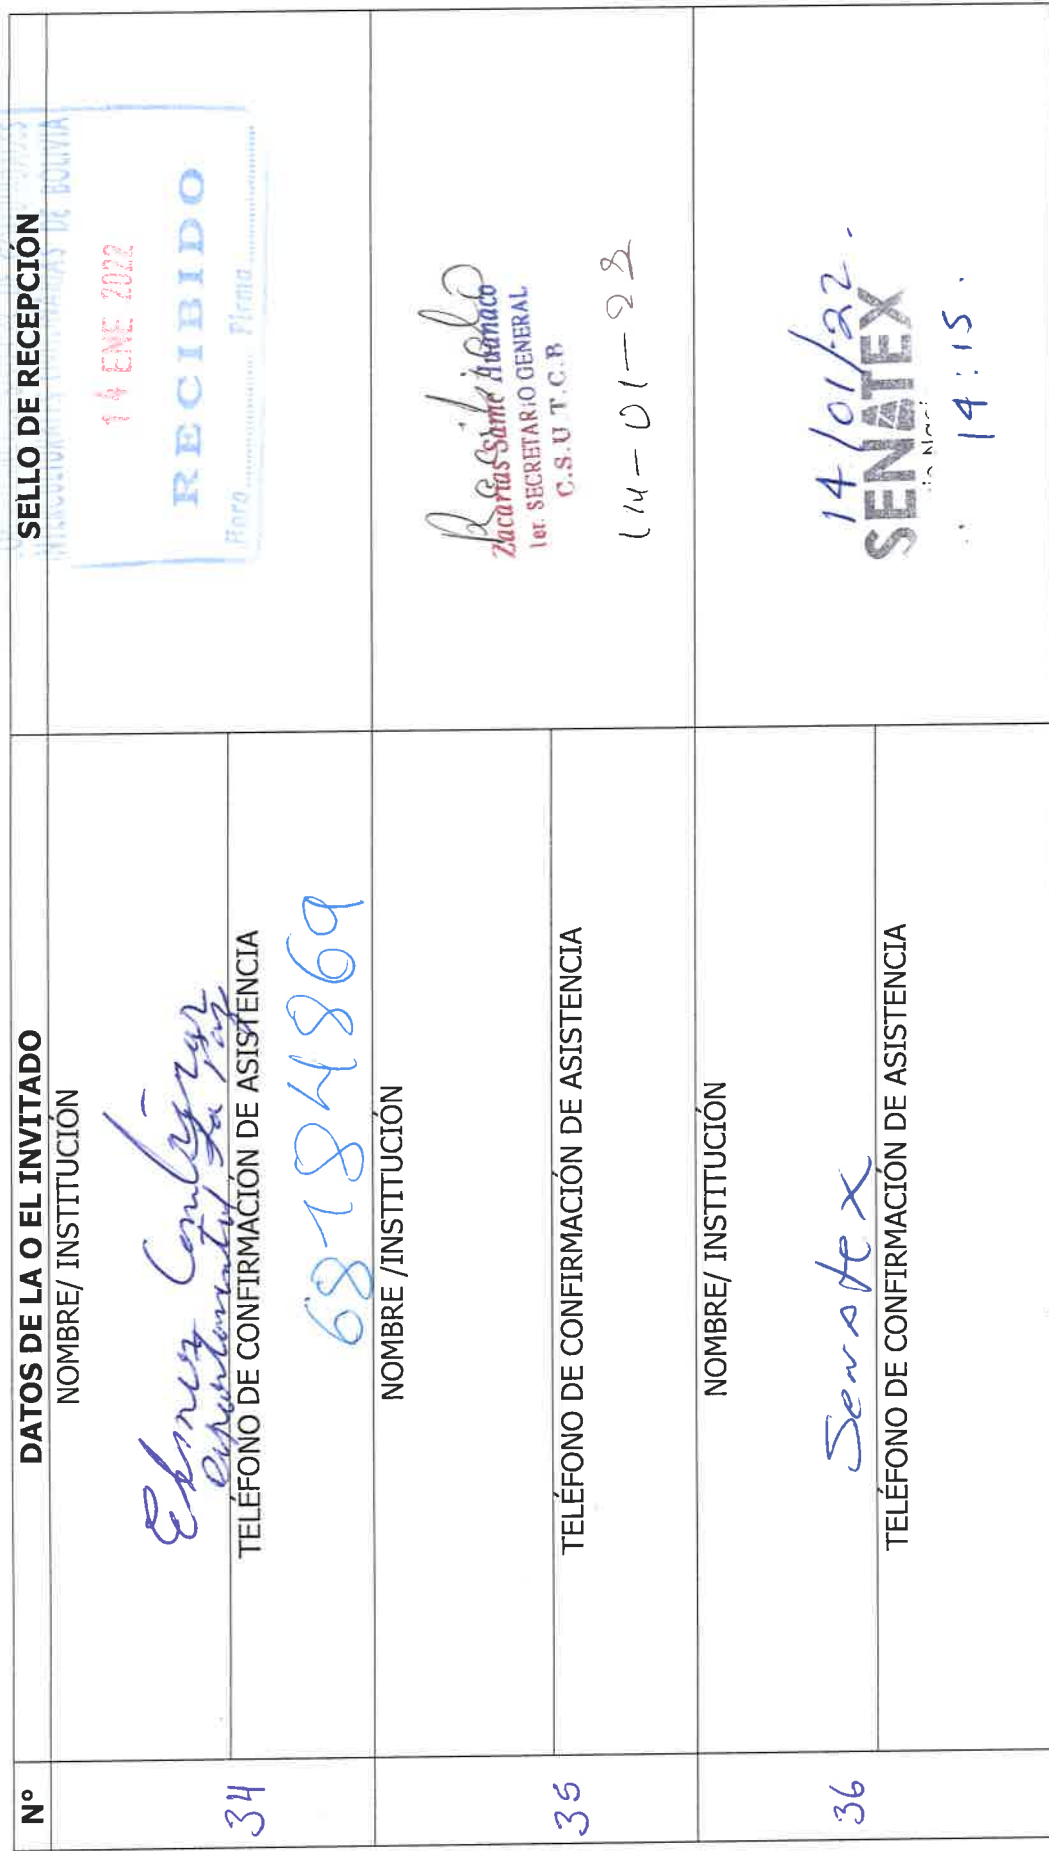 Nº
DATOS DE LA O EL INVITADO
SELLO DE RECEPCIÓN
34
NOMBRE/ INSTITUCIÓN
La Paz
TELÉFONO DE CONFIRMACIÓN DE ASISTENCIA
68184869
INTERCULTURALES ORIGINARIAS DE BOLIVIA
14 ENE 2022
RECIBIDO
Hora.............. Firma..............
35
NOMBRE /INSTITUCIÓN
TELÉFONO DE CONFIRMACIÓN DE ASISTENCIA
Zacarias Same Huanaco
1er. SECRETARIO GENERAL
C.S.U.T.C.B
14-01-22
36
NOMBRE/ INSTITUCIÓN
Senatex
TELÉFONO DE CONFIRMACIÓN DE ASISTENCIA
14/01/22.
SENATEX
14:15.